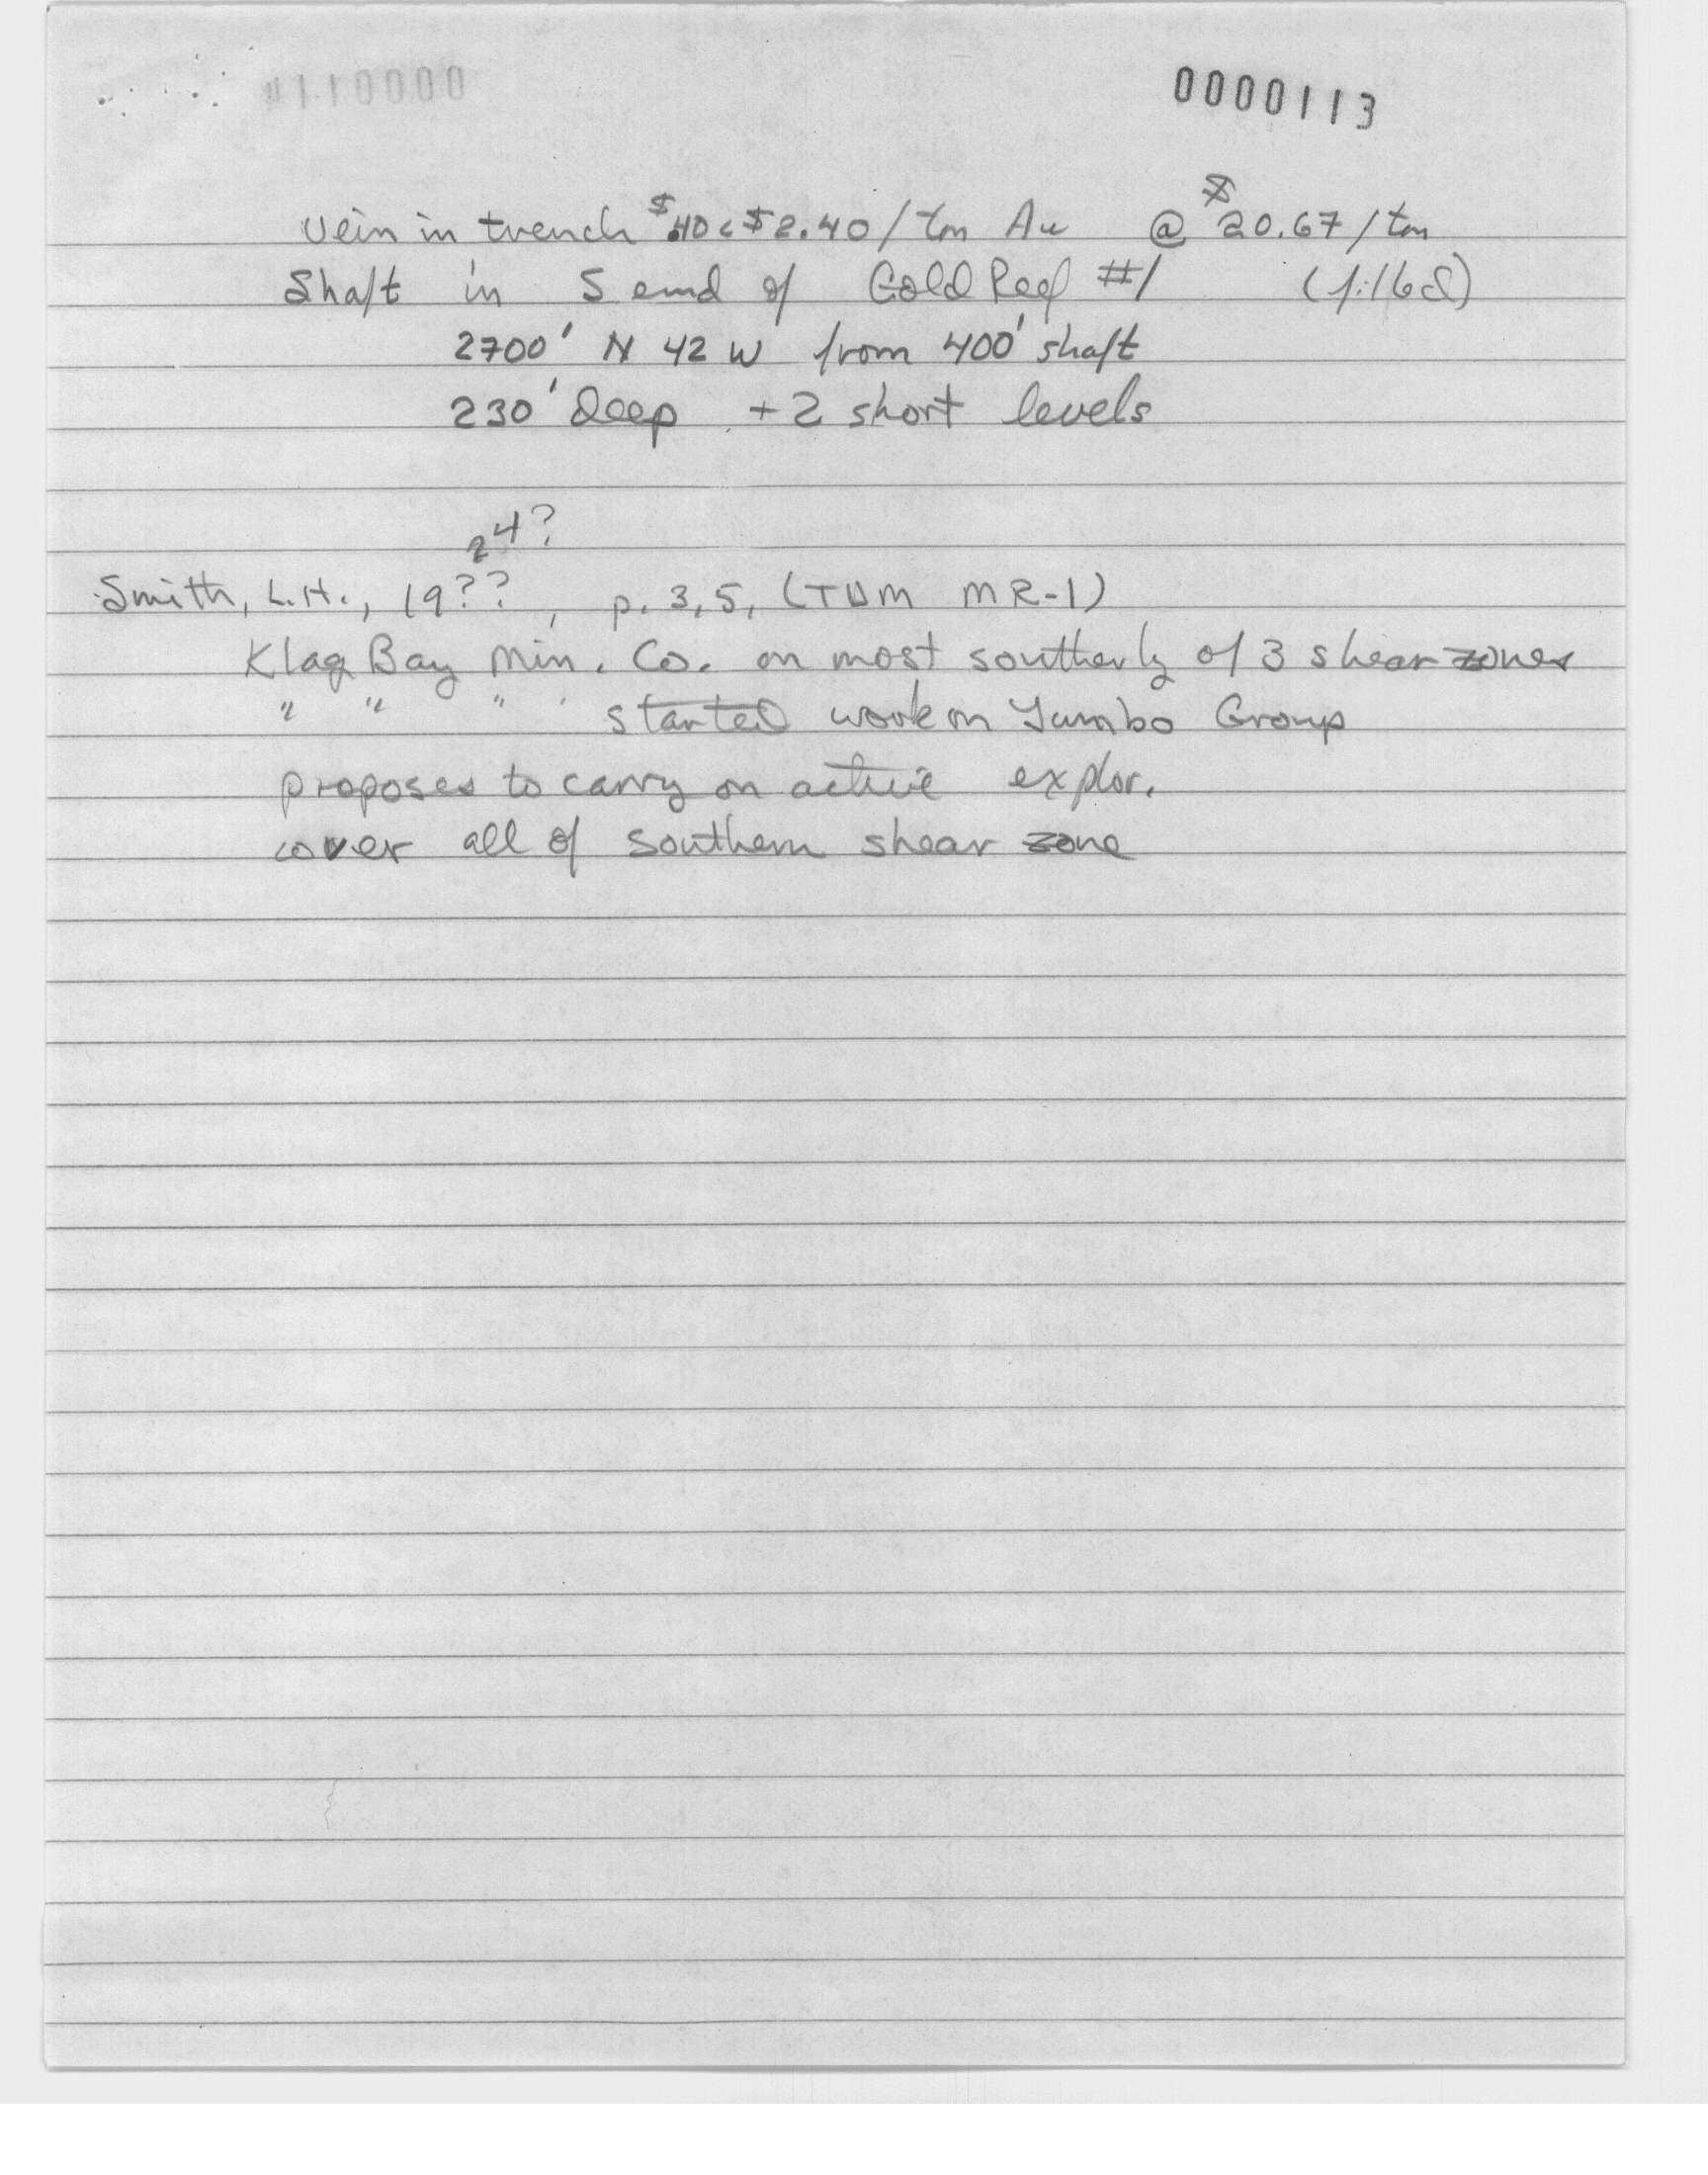 0000113
Vein in trench $.40 < $2.40/ton Au @ $20.67/ton
Shaft in S end of Gold Reef #1 (filled)
2700' N 42 W from 400' shaft
230' deep + 2 short levels
24?
Smith, L.H., 19??, p. 3,5, (TDM MR-1)
Klag Bay Min. Co. on most southerly of 3 shear zones
" " " started work on Jumbo Group
proposes to carry on active explor.
cover all of southern shear zone